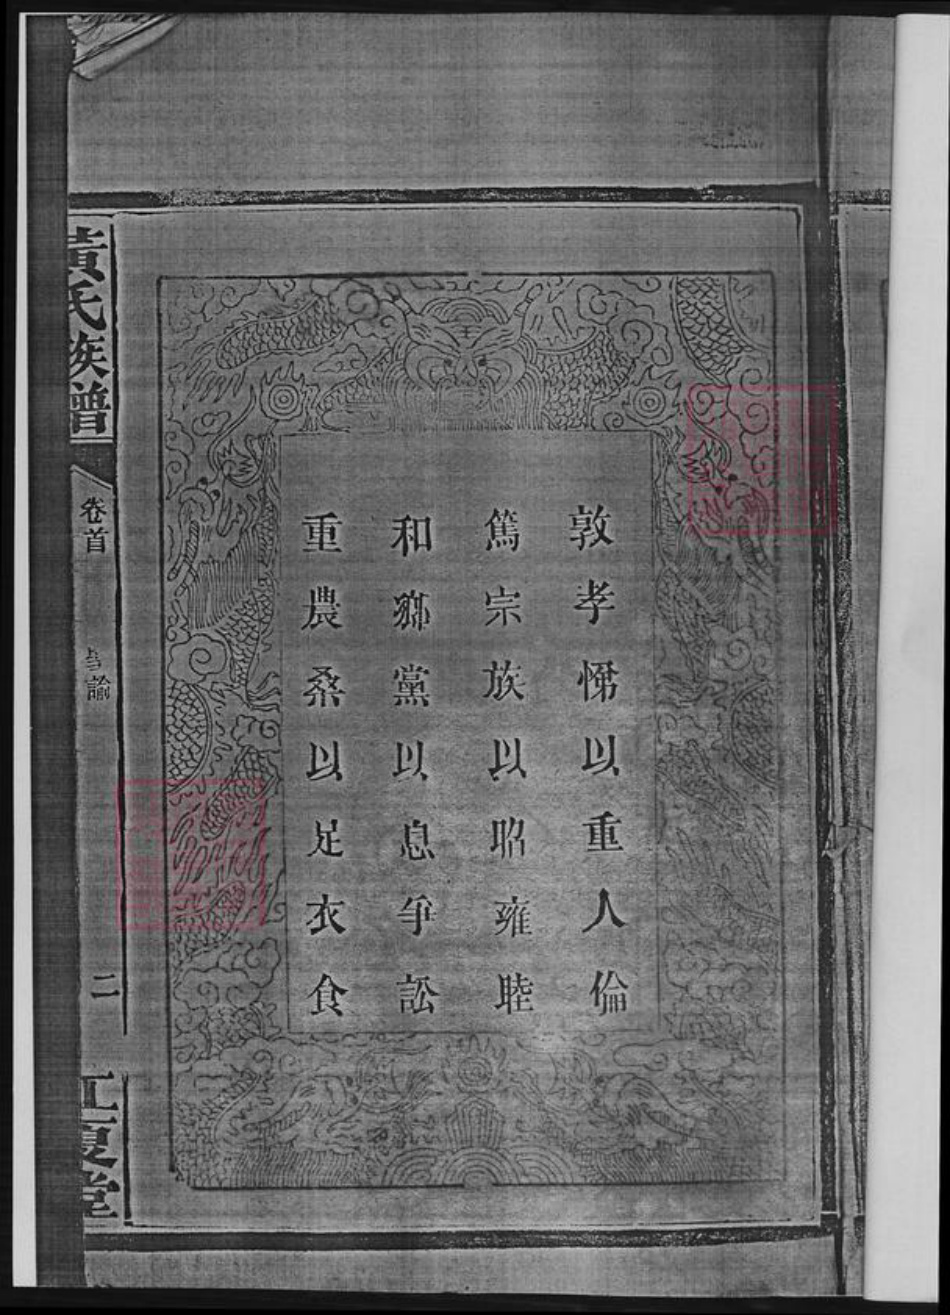 敦孝悌以重人倫
篤宗族以昭雍睦
和鄉黨以息爭訟
重農桑以足衣食
黃氏族譜
卷首
諭
二
江夏堂